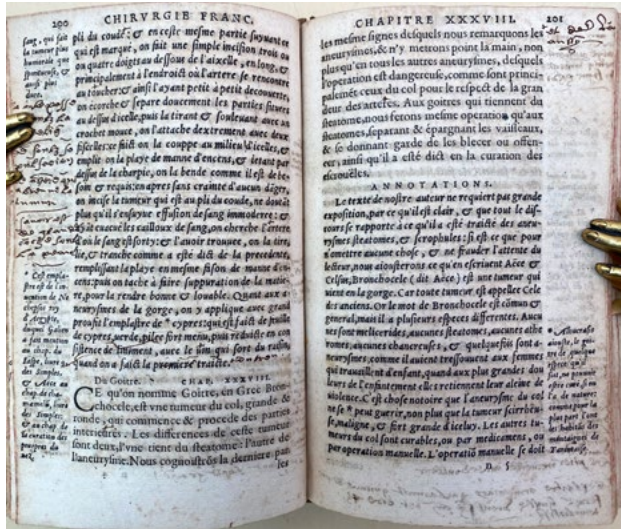 200 CHIRVRGIE FRANC.
pli du coude: & en ceste mesme partie suyuant ce
qui est marqué, on fait une simple incision trois ou
quatre doigts au dessous de l'aixelle, en long, &
principalement à l'endroit où l'artere se rencontre
au toucher: & ainsi l'ayant petit à petit decouuerte,
on écorche & separe doucement les parties situees
au dessus d'icelle, puis la tirant & souleuant auec un
crochet mouce, on l'attache dextrement auec deux
fiscelles: ce faict on la couppe au milieu d'icelles, &
emplit on la playe de manne d'encens, & iettant par
dessus de la charpie, on la bende comme il est de be-
soin & requis: en apres sans crainte d'aucun dãger,
on incise la tumeur qui est au pli du coude, ne doutãt
plus qu'il s'ensuyue effusion de sang immoderee: &
ayãt euacué les cailloux de sang, on cherche l'artere
d'où le sang est sorty: & l'auoir trouuee, on la tire,
lie, & tranche comme a esté dict de la precedente,
remplissant la playe en mesme façon de manne d'en-
cens: puis on tache à faire suppuration de la matie-
re, pour la rendre bonne & louable. Quant aux a-
neurysmes de la gorge, on y applique auec grand
profit l'emplastre de * cypres: qui est faict de fueille
de cypres verde, pilee fort menu, puis reduicte en con-
sistence de liniment, auec le jus qui sort du raisin,
quand on a faict la premiere traicte.
sang, qui fait
la tumeur plus
humorale que
spiritueuse, &
ainsi plus
* Cest empla-
stre est de l'in-
uention de
d'Egypte,
duquel Galien
a fait mention
au chap. du
& Aece au
chap. de cha-
des simples,
& au chap. de
la curation des
Du Goitre. CHAP. XXXVIII.
CE qu'on nomme Goitre, en Grec Bron-
chocele, est vne tumeur du col, grande &
ronde, qui commence & procede des parties
interieures. Les differences de ceste tumeur
sont deux, l'vne tient du steatome: l'autre de
l'aneurysme. Nous cognoistrõs la derniere par
les
CHAPITRE XXXVIII. 201
les mesme signes desquels nous remarquons les
aneurysmes, & n'y metrons point la main, non
plus qu'en tous les autres aneurysmes, desquels
l'operation est dangereuse, comme sont princi-
palemẽt ceux du col pour le respect de la gran
deur des arteres. Aux goitres qui tiennent du
steatome, nous ferons mesme operation qu'aux
steatomes, separant & épargnant les vaisseaux,
& se donnant garde de les blecer ou offen-
cer, ainsi qu'il a esté dict en la curation des
escrouëlles.
ANNOTATIONS.
Le texte de nostre auteur ne requiert pas grande
exposition, par ce qu'il est clair, & que tout le dis-
cours se rapporte à ce qu'il a esté traicté des aneu-
rysmes steatomes, & scrophules: si est ce que pour
n'omettre aucune chose, & ne frauder l'attente du
lecteur, nous aiousterons ce qu'en escriuent Aëce &
Celsus, Bronchocele (dit Aëce) est une tumeur qui
vient en la gorge. Car toute tumeur est appellee Cele
des anciens. Or le mot de Bronchocele est cõmun &
general, mais il a plusieurs especes differentes. Aucu
nes sont melicerides, aucunes steatomes, aucunes athe
romes, aucunes chancreuses, & quelquefois sont a-
neurysmes, comme il auient tressouuent aux femmes
qui trauaillent d'enfant, quand aux plus grandes dou
leurs de l'enfintement elles retiennent leur aleine de
violence. C'est chose notoire que l'aneurysme du col
ne se * peut guerir, non plus que la tumeur scirrheu-
se, maligne, & fort grande d'iceluy. Les autres tu-
meurs du col sont curables, ou par medicamens, ou
par operation manuelle. L'operatiõ manuelle se doit
* Albucrasis
aiouste, le goi-
tre de quelque
espece qu'il
soit, ne pouuoir
estre curé, si on
l'a de nature:
comme pour la
plus part l'ont
des habitãs des
montaignes de
Tarentaise.